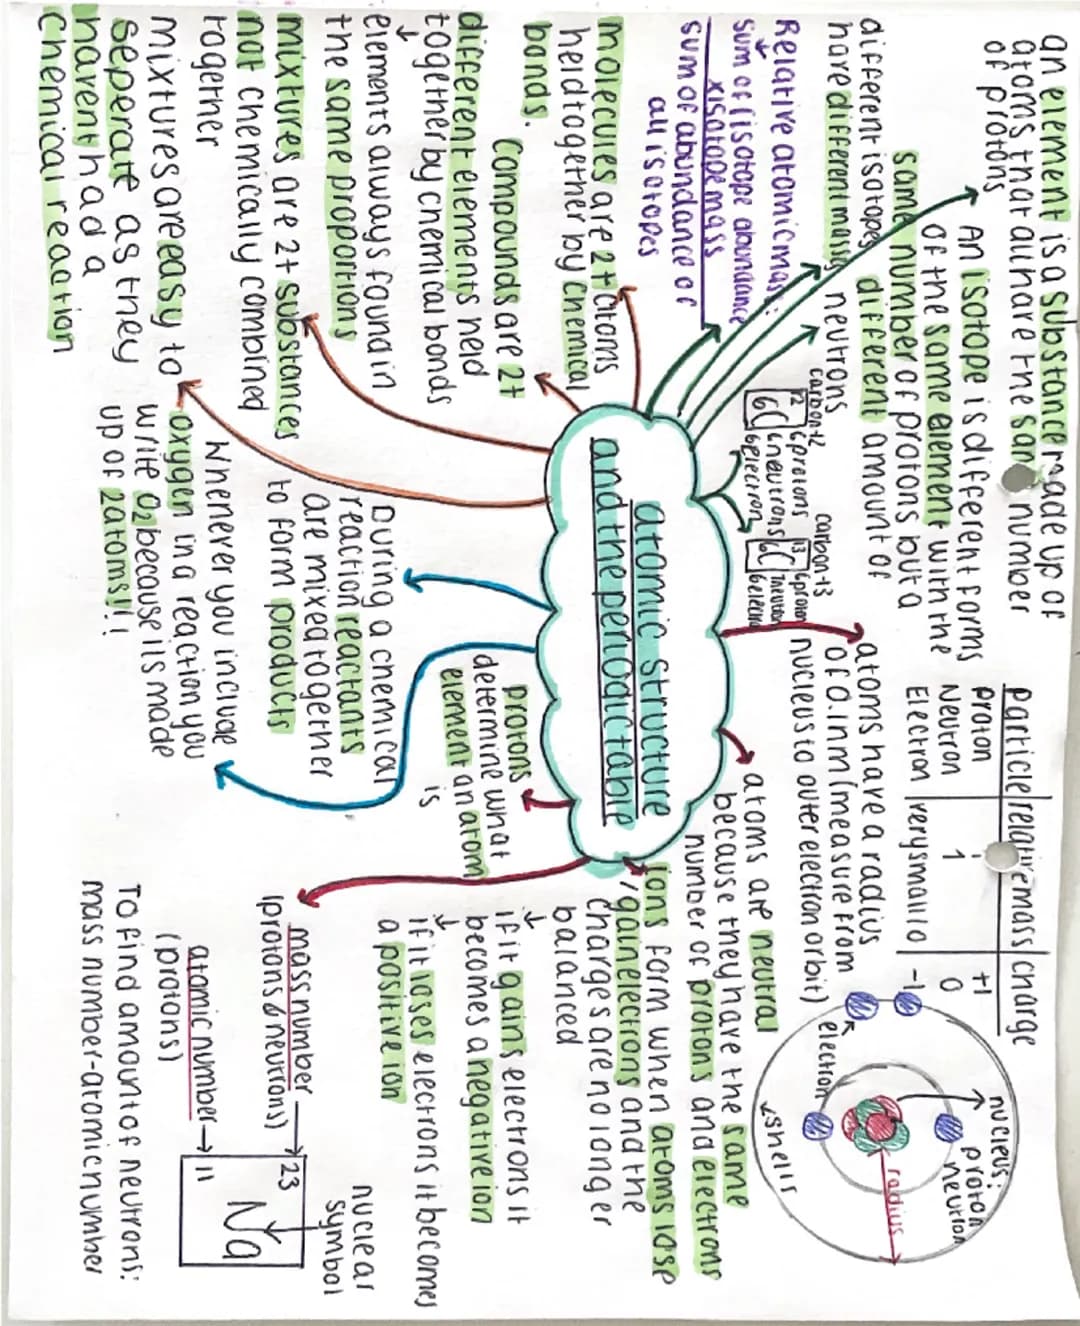 an element is a substance made up of
atoms that all have the same number
of protons
An isotope is different forms
of the same element with the
same number of protons but a
different amount of
neutrons
different isotopes
have different mass
Relative atomic mass:
sum of (isotope abundance
x isotope mass
sum of abundance of
all isotopes
molecules are 2+ atoms
held together by chemical
bonds.
compounds are 2+
different elements held
together by chemical bonds
elements always found in
the same proportions
mixtures are 2+ substances
not chemically combined
together
mixtures are easy to
seperate as they
havent had a
chemical reaction
carbon-12
12
6C
6 protons
6 neutrons
6 electron
carbon-13
13
6C
6 proton
7 neutron
atomic structure
and the periodic table
During a chemical
reaction reactants
are mixed together
to form products
Whenever you include
oxygen in a reaction you
write O2 because its made
up of 2 atoms!!
protons
determine what
element an atom
is
particle relative mass charge
proton 1 +1
Neutron 1 0
Electron very small/0 -1
atoms have a radius
of 0.1nm (measure from
nucleus to outer electron orbit)
nucleus:
proton
neutron
electron
radius
shells
atoms are neutral
because they have the same
number of protons and electrons
ions form when atoms lose
/gain electrons and the
charges are no longer
balanced
if it gains electrons it
becomes a negative ion
if it loses electrons it becomes
a positive ion
mass number
(protons & neutrons)
23
Na
11
nuclear
symbol
atomic number
(protons)
To find amount of neutrons:
mass number-atomic number